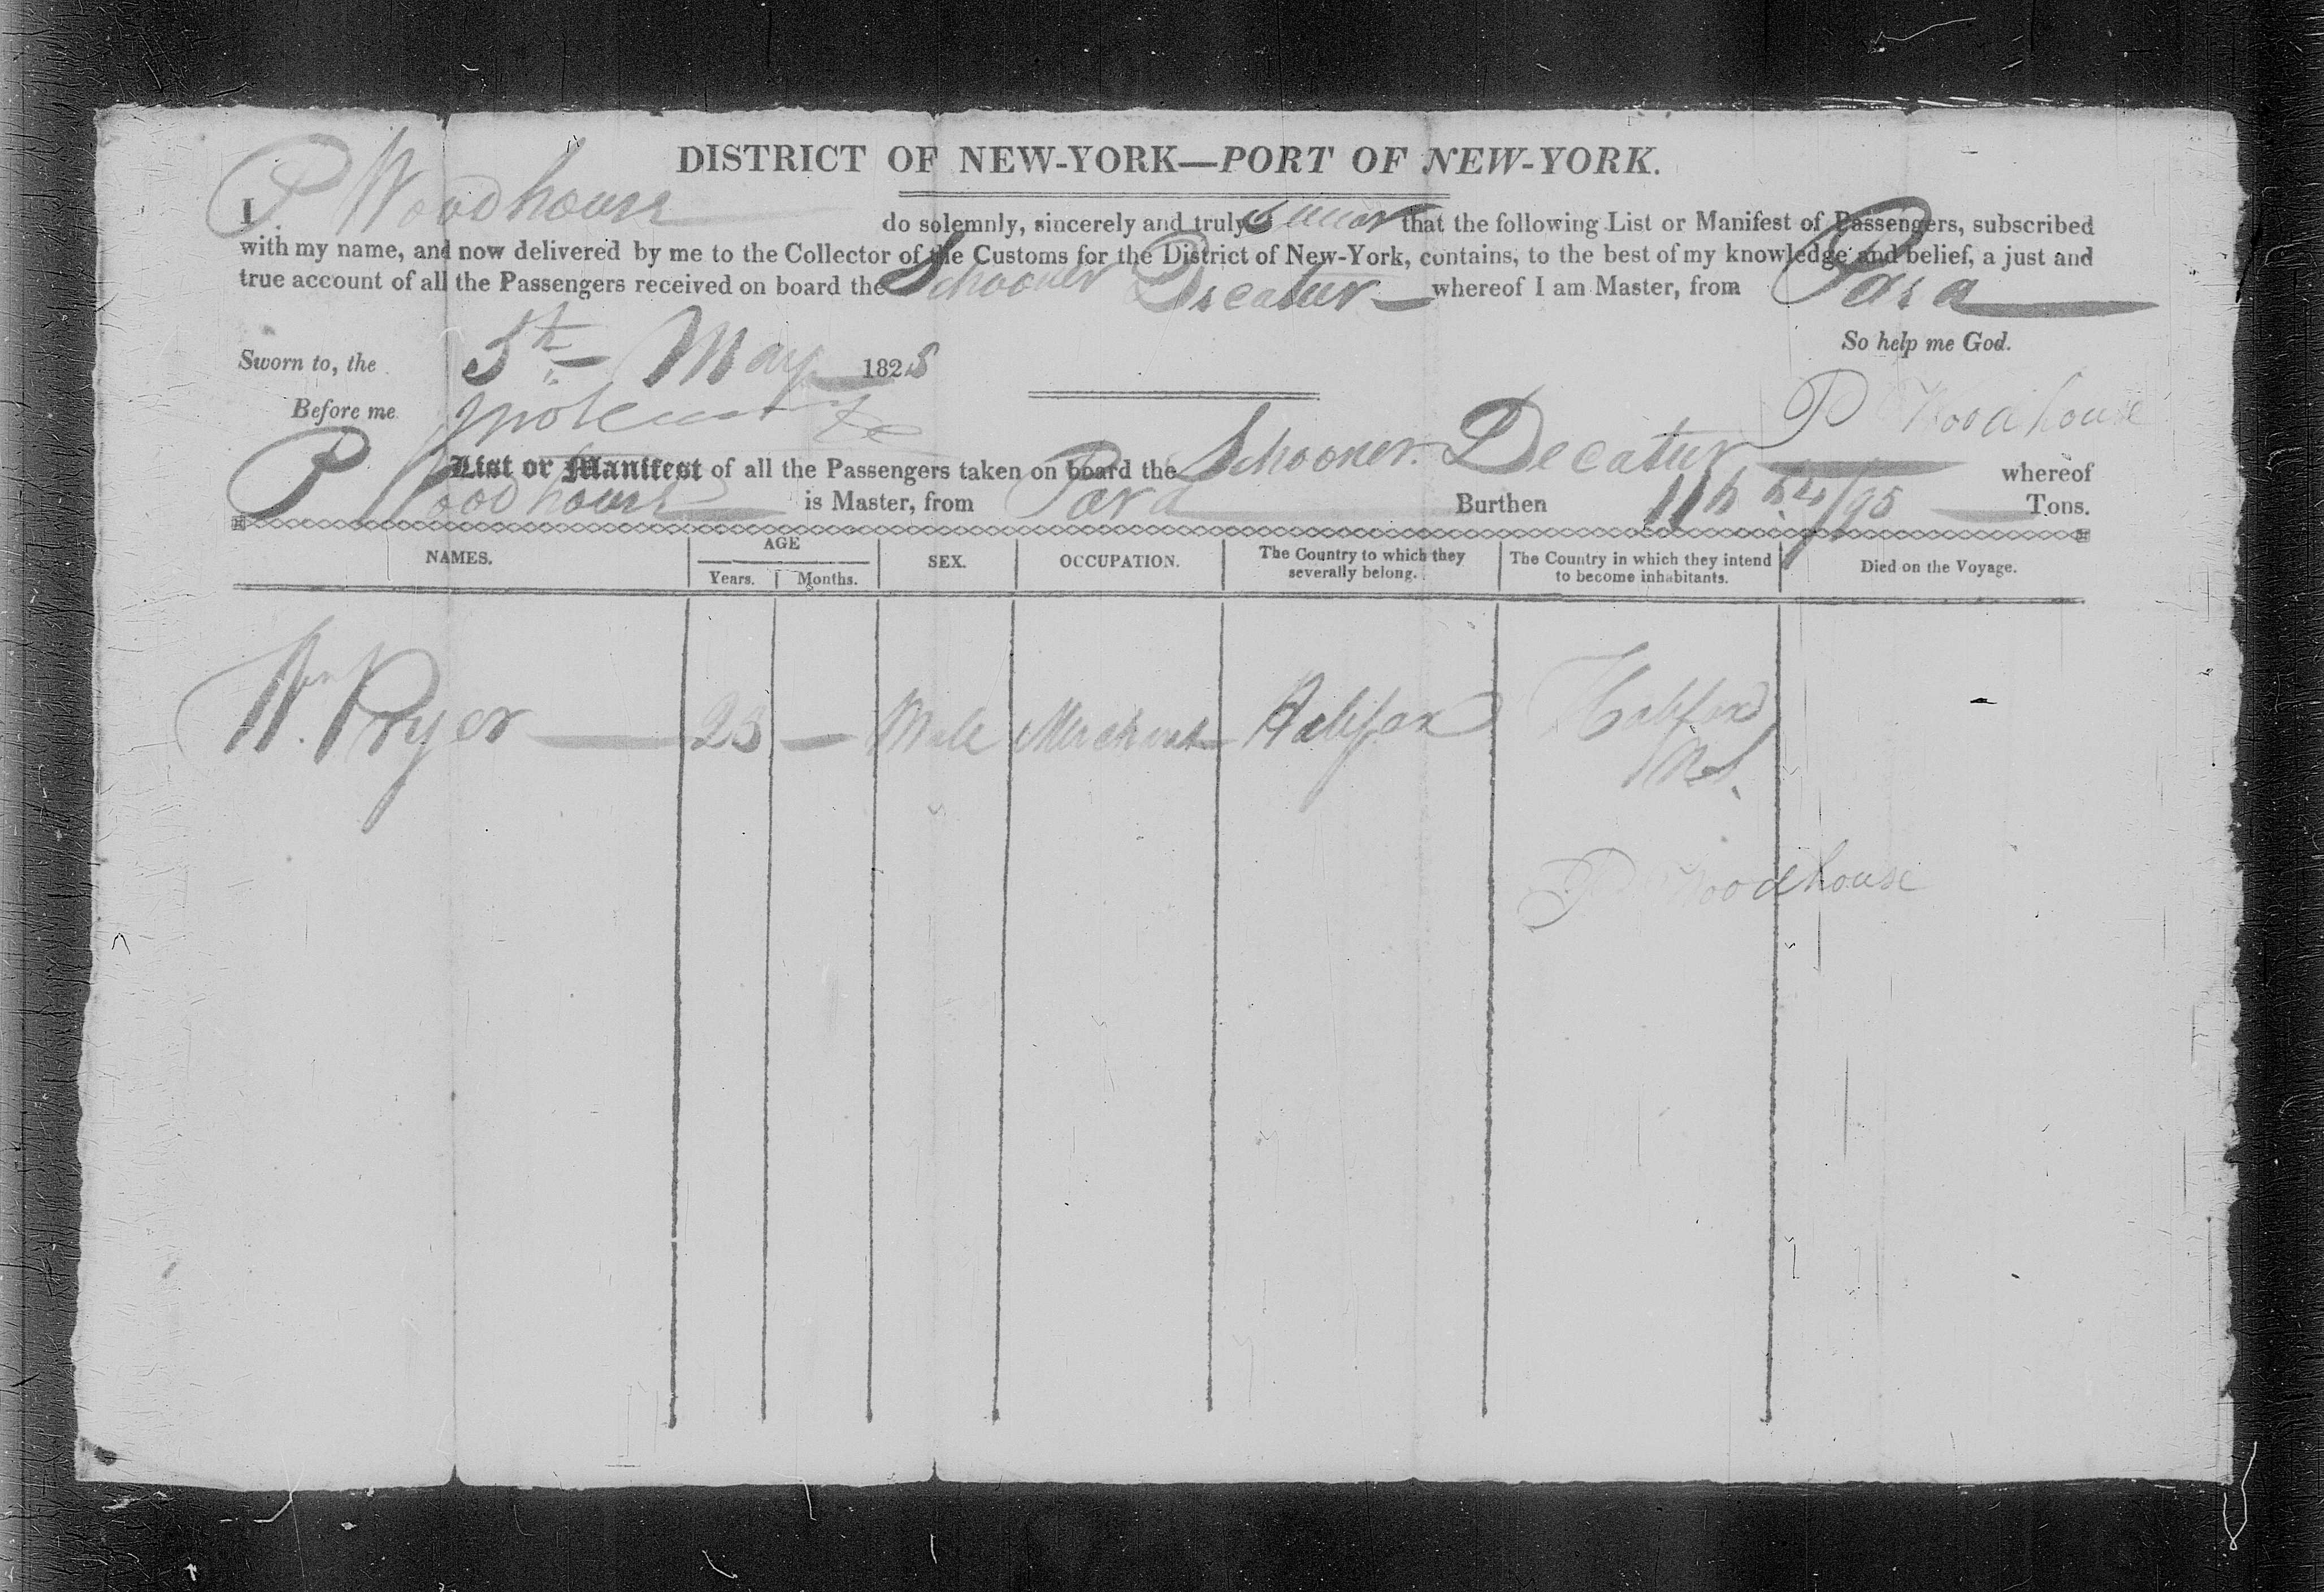 DISTRICT OF NEW-YORK—PORT OF NEW-YORK.
I P Woodhouse do solemnly, sincerely and truly swear that the following List or Manifest of Passengers, subscribed
with my name, and now delivered by me to the Collector of the Customs for the District of New-York, contains, to the best of my knowledge and belief, a just and
true account of all the Passengers received on board the Schooner Decatur whereof I am Master, from Para
So help me God.
Sworn to, the 5th May 1825
Before me P Woodhouse
List or Manifest of all the Passengers taken on board the Schooner Decatur whereof
P Woodhouse is Master, from Para Burthen /95 Tons.
NAMES. AGE SEX. OCCUPATION. The Country to which they severally belong. The Country in which they intend to become inhabitants. Died on the Voyage.
Years. Months.
Wm Pryer 23 — Male Merchant Halifax Halifax
NS.
P Woodhouse